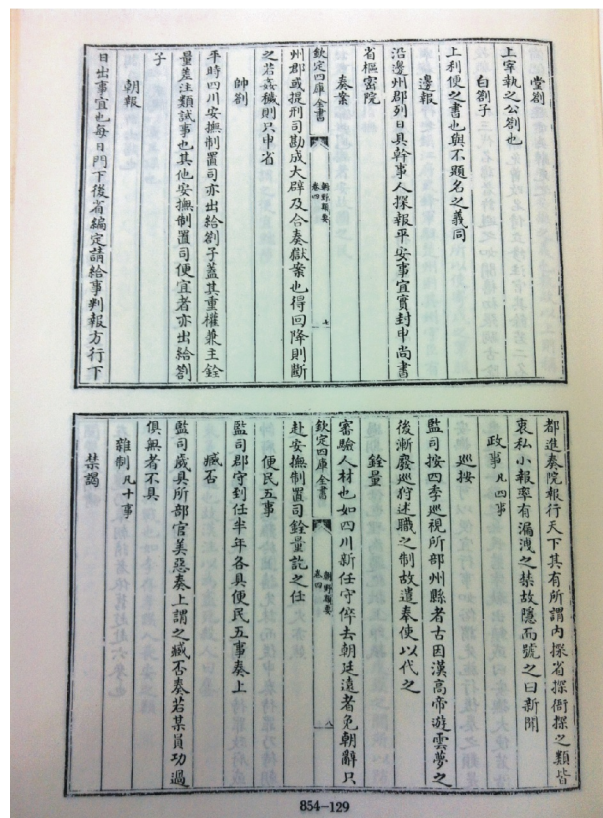 堂劄
上宰執之公劄也
白劄子
上利便之書也與不題名之義同
邊報
沿邊州郡列日具幹事人探報平安事宜實封申尚書
省樞宻院
奏案
欽定四庫全書
朝野類要
卷四
七
州郡或提刑司勘成大辟及合奏獄案也得回降則斷
之若姦穢則只申省
帥劄
平時四川安撫制置司亦出給劄子蓋其重權兼主銓
量差注類試事也其他安撫制置司便宜者亦出給劄
子
朝報
日出事宜也每日門下後省編定請給事判報方行下
都進奏院報行天下其有所謂内探省探衙探之類皆
衷私小報率有漏洩之禁故隱而號之曰新聞
政事凡四事
巡按
監司按四季巡視所部州縣者古因漢髙帝游雲夢之
後漸廢巡狩述職之制故遣奉使以代之
銓量
審驗人材也如四川新任守倅去朝廷遠者免朝辭只
欽定四庫全書
朝野類要
卷四
八
赴安撫制置司銓量訖之任
便民五事
監司郡守到任半年各具便民五事奏上
臧否
監司歲具所部官美惡奏上謂之臧否奏若某員功過
俱無者不具
雜制凡十事
禁謁
854-129